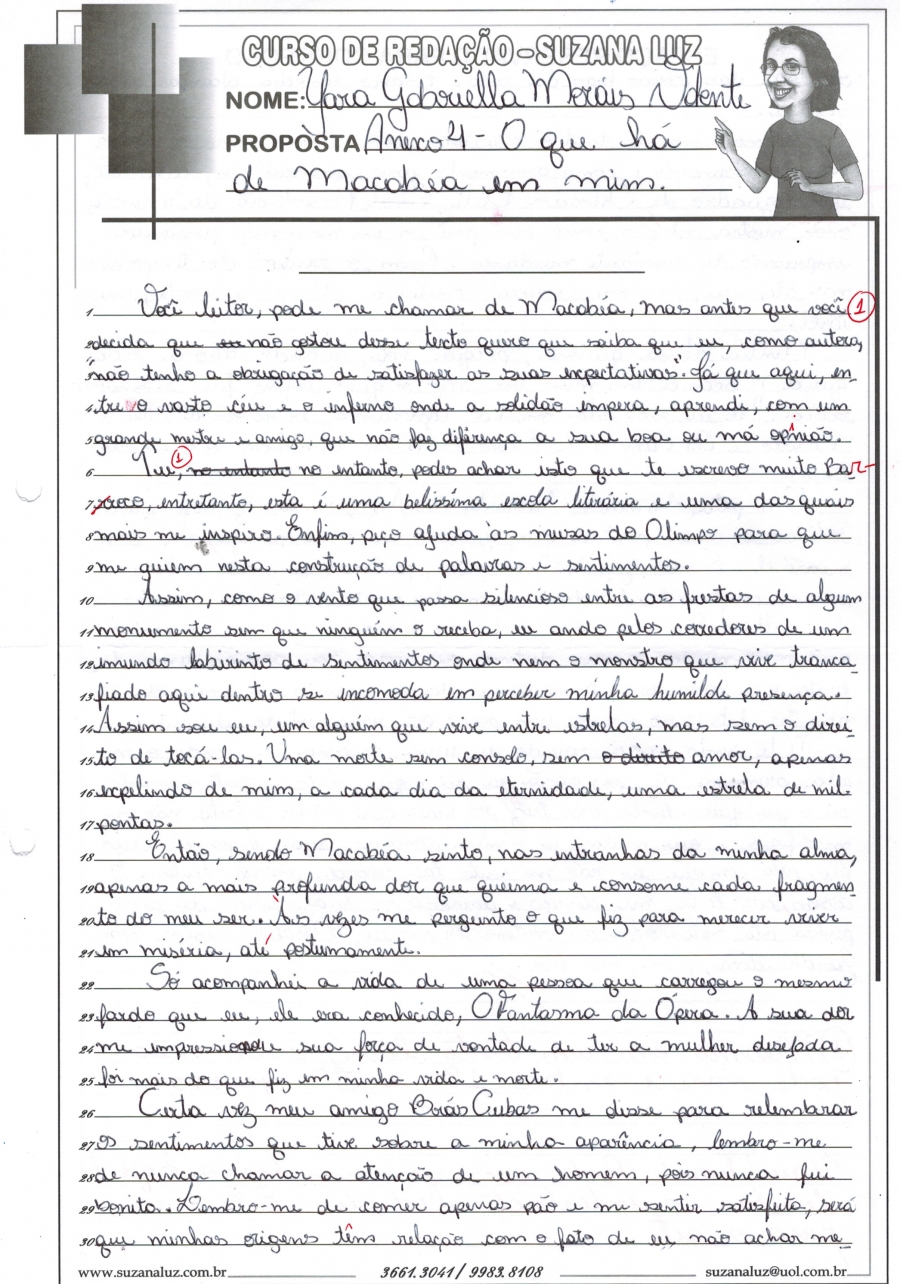 CURSO DE REDAÇÃO - SUZANA LUZ
NOME: Yara Gabriella Morais Vdente
PROPOSTA Anexo 4 - O que há
de Macabéa em mim.
1 Você leitor, pode me chamar de Macabéa, mas antes que você 1
2 decida que não gostou desse texto quero que saiba que eu, como autora,
3 "não tenho a obrigação de satisfazer as suas expectativas". Já que aqui, en-
4 tre o vasto céu e o inferno onde a solidão impera, aprendi, com um
5 grande mestre e amigo, que não faz diferença a sua boa ou má opinião.
6 Tu, 1 no entanto no entanto, podes achar isto que te escrevo muito Bar-
7 roco, entretanto, esta é uma belissíma escola literária e uma das quais
8 mais me inspiro. Enfim, peço ajuda às musas do Olimpo para que
9 me guiem nesta construção de palavras e sentimentos.
10 Assim, como o vento que passa silencioso entre as frestas de algum
11 monumento sem que ninguém o receba, eu ando pelos corredores de um
12 imundo labirinto de sentimentos onde nem o monstro que vive tranca
13 fiado aqui dentro se incomoda em perceber minha humilde presença.
14 Assim sou eu, um alguém que vive entre estrelas, mas sem o direi-
15 to de tocá-las. Uma morte sem consolo, sem o direito amor, apenas
16 expelindo de mim, a cada dia da eternidade, uma estrela de mil
17 pontas.
18 Então, sendo Macabéa sinto, nas entranhas da minha alma,
19 apenas a mais profunda dor que queima e consome cada fragmen-
20 to do meu ser. Às vezes me pergunto o que fiz para merecer viver
21 em miséria, até postumamente.
22 Só acompanhei a vida de uma pessoa que carregou o mesmo
23 fardo que eu, ele era conhecido, O Fantasma da Ópera. A sua dor
24 me impressionou e sua força de vontade de ter a mulher desejada
25 foi mais do que fiz em minha vida e morte.
26 Certa vez meu amigo Brás Cubas me disse para relembrar
27 os sentimentos que tive sobre a minha aparência, lembro-me
28 de nunca chamar a atenção de um homem, pois nunca fui
29 bonita. Lembro-me de comer apenas pão e me sentir satisfeita, será
30 que minhas origens têm relação com o fato de eu não achar me-
www.suzanaluz.com.br 3661.3041 / 9983.8108 suzanaluz@uol.com.br